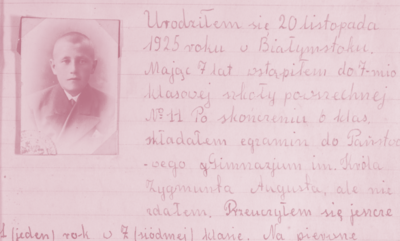 Urodziłem się 20 listopada
1925 roku w Białymstoku.
Mając 7 lat wstąpiłem do 7-mio
klasowej szkoły powszechnej
№ 11 Po skończeniu 6 klas
składałem egzamin do Państwo-
-wego Gimnazjum im. Króla
Zygmunta Augusta, ale nie
zdałem. Przeuczyłem się jeszcze
1 (jeden) rok w 7 (siódmej) klasie. Na pierwsze